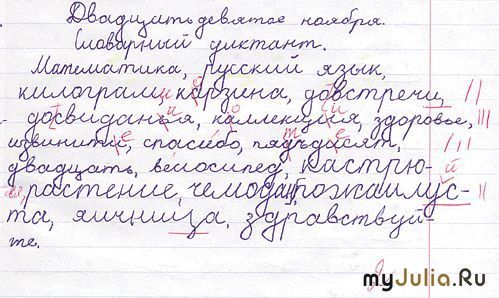 Двадцать девятое ноября.
Словарный диктант.
Математика, русский язык,
килограмм, карзина, довстречи,
досвиданья, каллекция, здоровье,
извинити, спасибо, пядъдисят,
двадцать, велосипед, кастрю-
ля, растение, чемодан, пожаилус-
та, яичница, здравствуй-
те.
myJulia.Ru